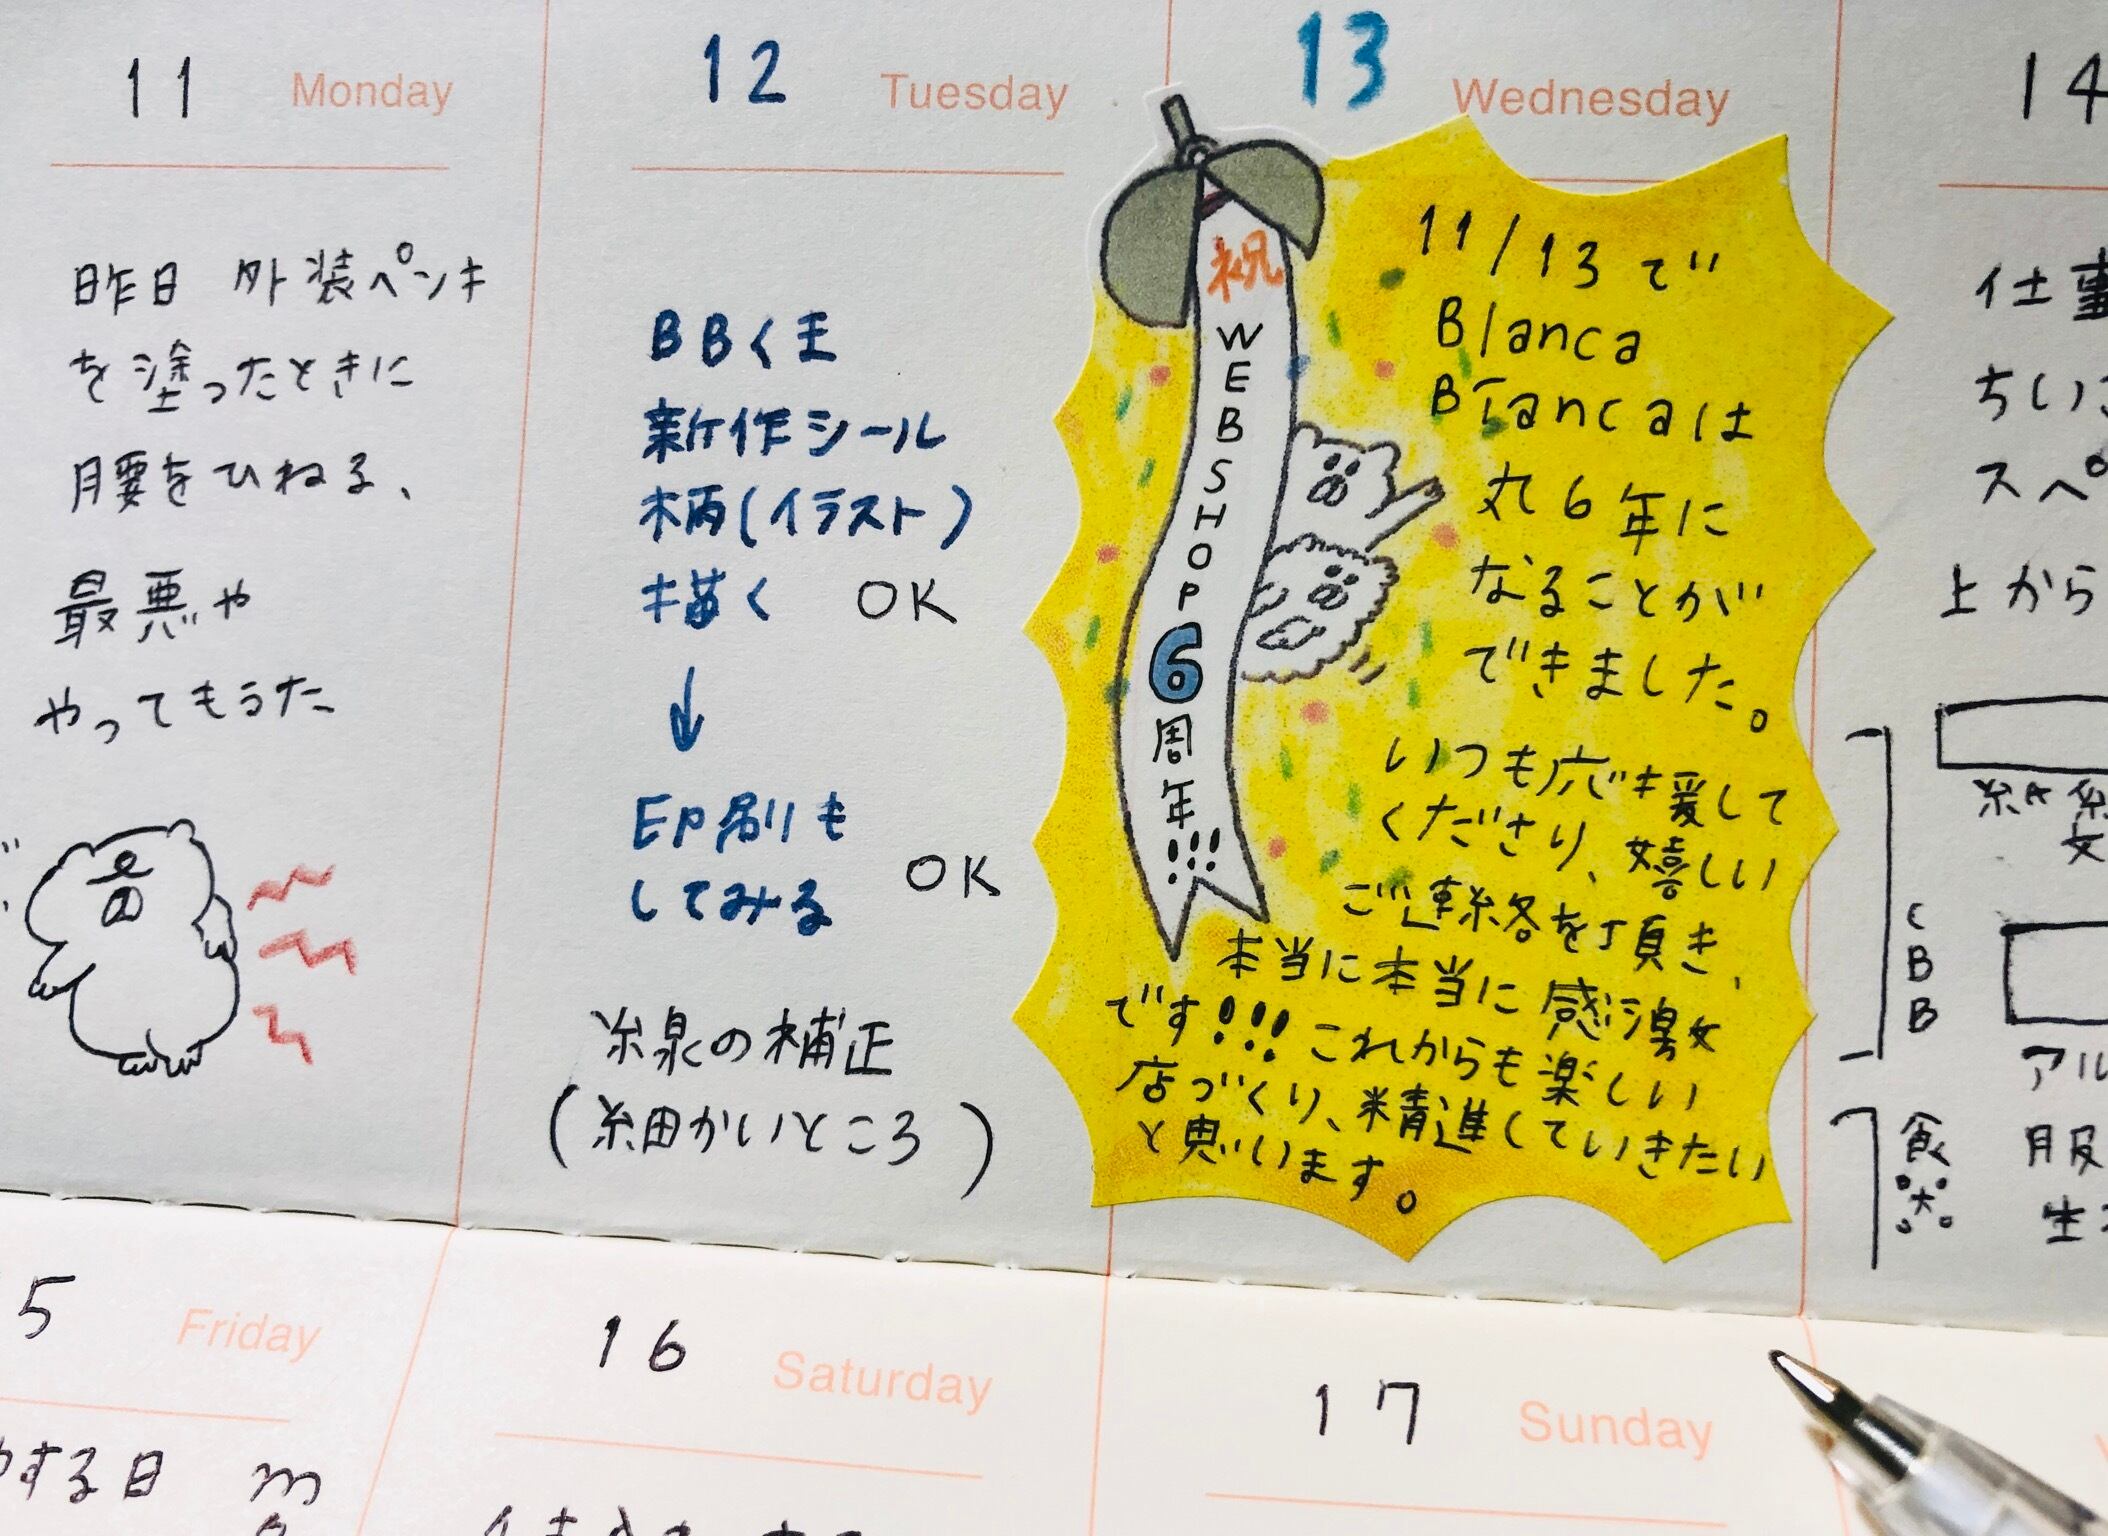 11 Monday
昨日 外装ペンキ
を塗ったときに
腰をひねる、
最悪や
やってもうた
12 Tuesday
BBくま
新作シール
柄(イラスト)
描く OK
↓
印刷も
してみる OK
線の補正
(細かいところ)
13 Wednesday
祝
WEBSHOP
6
周年!!!
11/13で
Blanca
Biancaは
丸6年に
なることが
できました。
いつも応援して
くださり、嬉しい
ご連絡を頂き、
本当に本当に感激
です!!!これからも楽しい
店づくり、精進していきたい
と思います。
14
仕事
ちいさ
スペ
上から
CBB
アル
服
生
5 Friday
する日
16 Saturday
17 Sunday